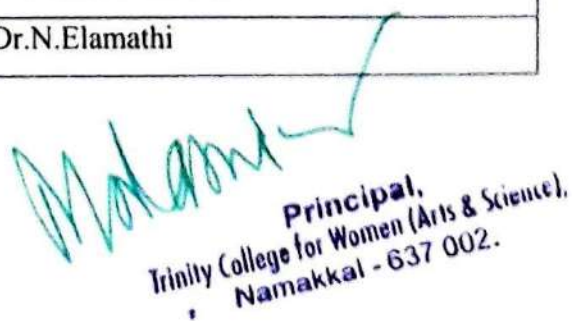 Dr.N.Elamathi
Principal,
Trinity College for Women (Arts & Science),
Namakkal - 637 002.